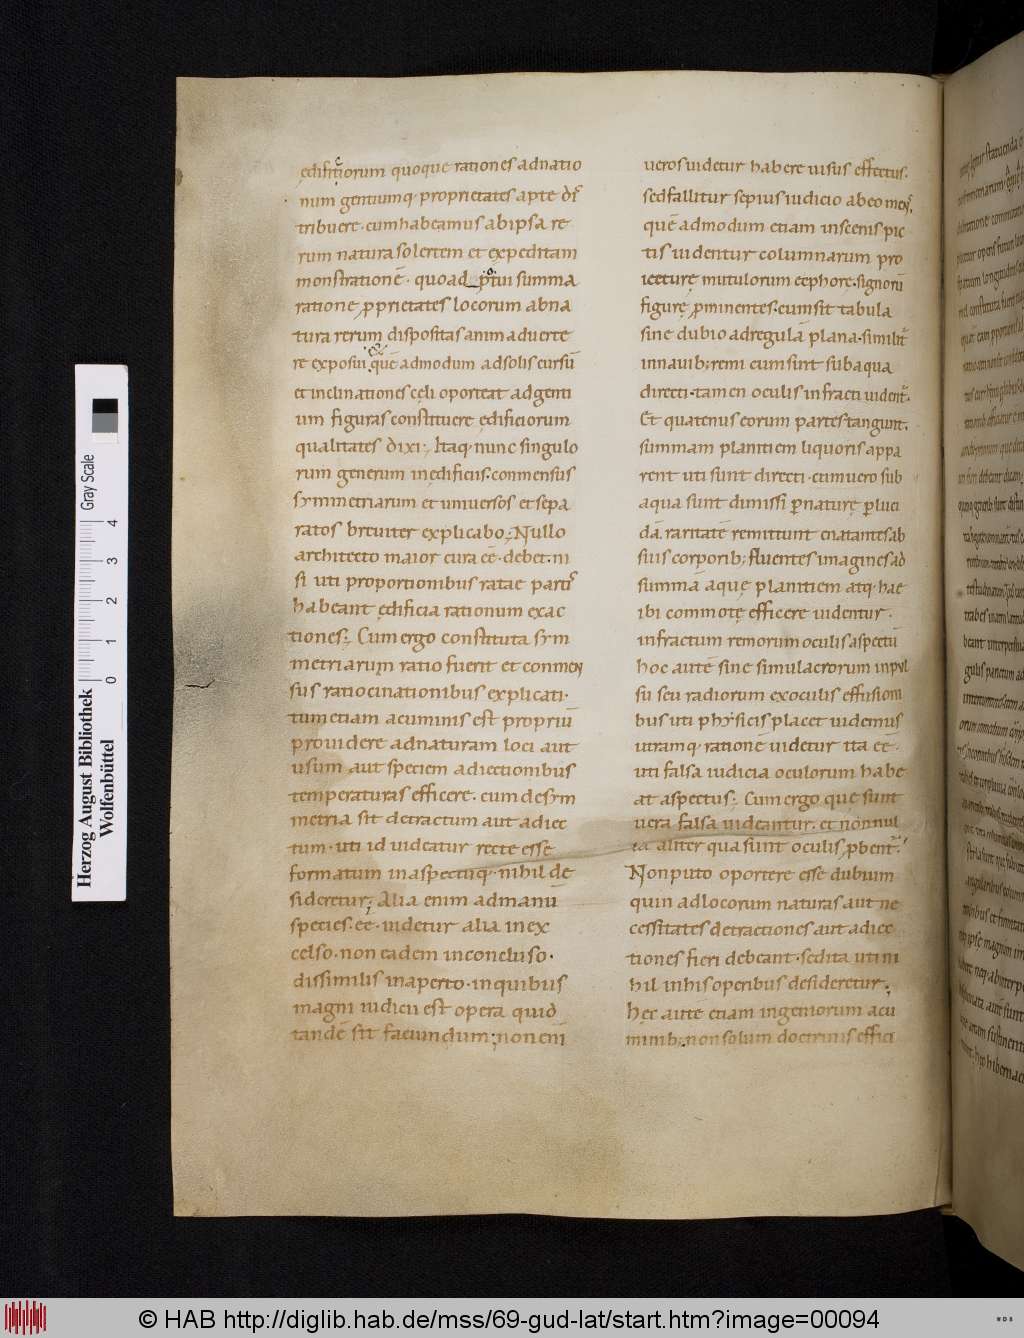 ędifitiorum quoque rationes ad natio
num gentiumq· proprietates apte dis
tribuere· cum habeamus ab ipsa re
rum natura solertem et expeditam
monstratione̅· quoad potui summa
ratione proprietates locorum ab na
tura rerum dispositas animaduerte
re exposui et que̅ admodum ad solis cursu̅
et inclinationes cęli oporteat ad genti
um figuras constituere ędificiorum
qualitates dixi; Itaq· nunc singulo
rum generum in ędificiis· conmensus
symmetriarum et uniuersos et sepa
ratos breuiter explicabo; Nullo
architecto maior cura e̅e̅· debet· ni
si uti proportionibus ratae partis
habeant ędificia rationum exac
tiones; Cum ergo constituta sym
metriarum ratio fuerit et conmen
sus ratiocinationibus explicati·
tum etiam acuminis est propriu̅
prouidere ad naturam loci aut
usum aut speciem adiectionibus
temperaturas efficere· cum de sym
metria sit detractum aut adiec
tum· uti id uideatur recte esse
formatum in aspectuq· nihil de̅
sideretur; Alia enim ad manu̅
species· e̅e̅· uidetur alia in ex
celso· non eadem in concluso·
dissimilis in aperto· in quibus
magni iudicii est opera quid
tande̅ sit faciundum; non eni̅
ueros uidetur habere uisus effectus·
sed fallitur sepius iudicio ab eo men̅s·
que̅ admodum etiam in scenis pic
tis uidentur columnarum pro
iecturę mutulorum ecphore· signoru̅
figurę prominentes· cum sit tabula
sine dubio ad regula̅ plana· similit̅
in nauib; remi cum sunt sub aqua
directi· tamen oculis infracti uident̅·
Et quatenus eorum partes tangunt·
summam planitiem liquoris appa
rent uti sunt directi· cum uero sub
aqua sunt dimissi p̅ naturę p̅luci
da̅ raritate̅ remittunt enatantes ab
suis corporib; fluentes imagines ad
summa̅ aquę planitiem atq· hae
ibi commotę efficere uidentur·
infractum remorum oculis aspectu̅
hoc aute̅ sine simulacrorum inpul
su seu radiorum ex oculis effusioni
bus uti physicis placet uidemus
utramq· ratione̅ uidetur ita e̅e̅·
uti falsa iudicia oculorum habe
at aspectus; Cum ergo quę sunt
uera falsa uideantur· et non nul
la aliter qua sunt oculis p̅bent̅·
Non puto oportere esse dubium
quin ad locorum naturas aut ne
cessitates detractiones aut adiec
tiones fieri debeant· sed ita uti ni
hil in his operibus desideretur;
hęc aute̅ etiam ingeniorum acu
minib; non solum doctrinis effici
Herzog August Bibliothek
Wolfenbüttel
Gray Scale
0 1 2 3 4
© HAB http://diglib.hab.de/mss/69-gud-lat/start.htm?image=00094